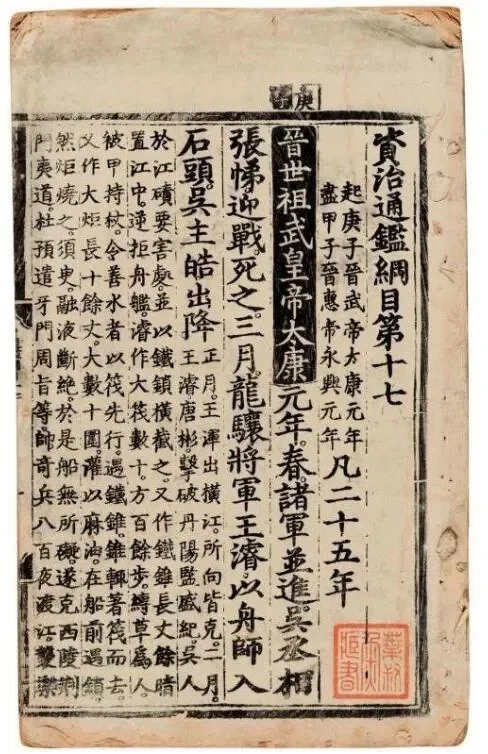 庚子
資治通鑑綱目第十七
起庚子晉武帝太康元年
盡甲子晉惠帝永興元年
凡二十五年
晉世祖武皇帝太康元年。春。諸軍並進。吳丞相
張悌迎戰。死之。三月。龍驤將軍王濬。以舟師入
石頭。吳主皓出降
正月。王渾出橫江。所向皆克。二月。
王濬唐彬。擊破丹陽監盛紀。吳人
於江磧要害處。並以鐵鎖橫截之。又作鐵錐長丈餘暗
置江中。逆拒舟艦。濬作大筏數十。方百餘步。縛草爲人
彼甲持杖。令善水者以筏先行。遇鐵錐。錐輒著筏而去。
又作大炬長十餘丈。大數十圍。灌以麻油。在船前遇鎖。
然炬燒之。須臾。融液斷絶。於是船無所礙。遂克西陵荊
門夷道。杜預遣牙門周旨等。帥奇兵八百夜渡江。襲樂